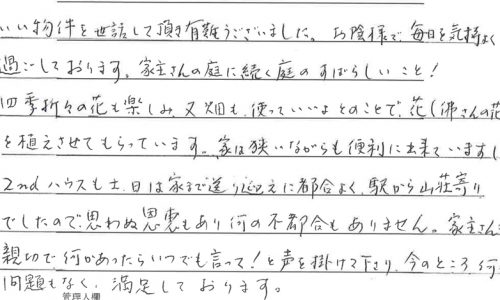 いい物件を世話して頂き有難うございました。お陰様で毎日を気持よく
過ごしております。家主さんの庭に続く庭のすばらしいこと!
四季折々の花も楽しみ、又畑も使っていいよとのことで、花(佛さんの花
を植えさせてもらっています。家は狭いながらも便利に出来ていますし
2ndハウスも土、日は家まで送り迎えに都合よく、駅から山荘寄り
でしたので思わぬ恩恵もあり何の不都合もありません。家主さんも
親切で何かあったらいつでも言って!と声を掛けて下さり、今のところ何
問題もなく、満足しております。
管理人欄